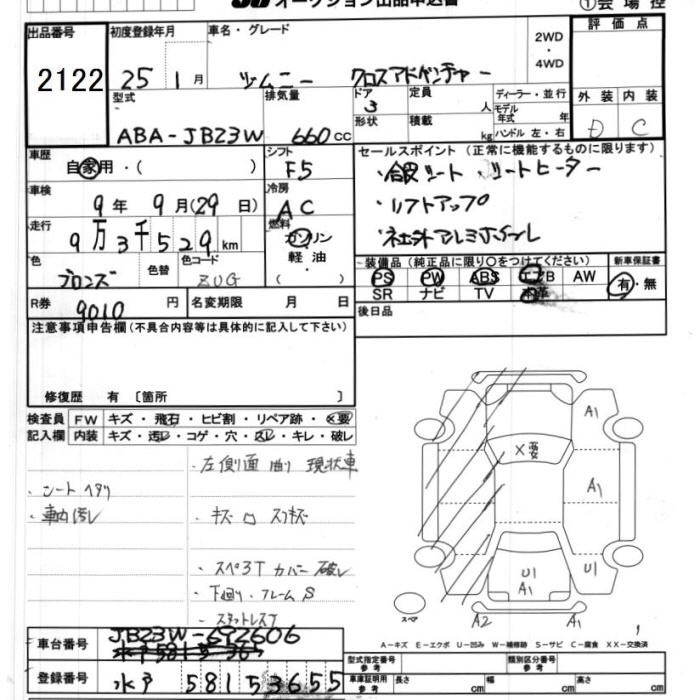 オークション出品申込書
①会場控
出品番号 初度登録年月 車名・グレード 2WD・4WD 評価点
2122 25年 1月 ジムニー クロスアドベンチャー
型式 排気量 ドア 定員 人 ディーラー・並行 外装 内装
ABA-JB23W 660CC 3 形状 積載 kg モデル年式 年 ハンドル 左・右 D C
車歴 自家用・( ) シフト F5 セールスポイント(正常に機能するものに限ります)
・合皮シート ・シートヒーター
車検 9年 9月(29日) 冷房 AC ・リフトアップ
走行 9万3千529km 燃料 ガソリン 軽油・( ) ・社外アルミホイール
色 ブロンズ 色替 色コード ZUG
装備品(純正品に限り○をつけてください) 新車保証書
PS PW ABS エアB AW 有・無
SR ナビ TV 本革
R券 9010円 名変期限 月 日 後日品
注意事項申告欄(不具合内容等は具体的に記入して下さい)
修復歴 有〔箇所 〕
検査員 FW キズ・飛石・ヒビ割・リペア跡・×要
記入欄 内装 キズ・汚レ・コゲ・穴・スレ・キレ・破レ
・左側面 曲り 現状車
・シートヘタリ
・車内汚レ ・キズ ロ スリキズ
・スペアT カバー 破レ
・下廻り・フレーム S
・スタットレスT
A1
×要
A1
U1 A1 U1
スペア A2 A1
A-キズ E-エクボ U-凹み W-補修跡 S-サビ C-腐食 XX-交換済
車台番号 JB23W-692606
型式指定番号 参考 類別区分番号 参考
登録番号 水戸 581 5 3655
車庫証明用 参考 長さ cm 幅 cm 高さ cm